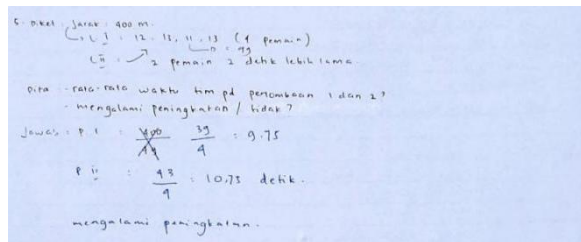 5. Diket : Jarak : 400 m.
L I : 12. 13, 11. 13 (4 pemain)
L II : 2 pemain 2 detik lebih lama.
Dita : rata-rata waktu tim pd perlombaan 1 dan 2?
- mengalami peningkatan / tidak?
Jawab : P. I : 400 39 : 9.75
44 4
P II : 43 : 10,75 detik.
4
mengalami peningkatan.